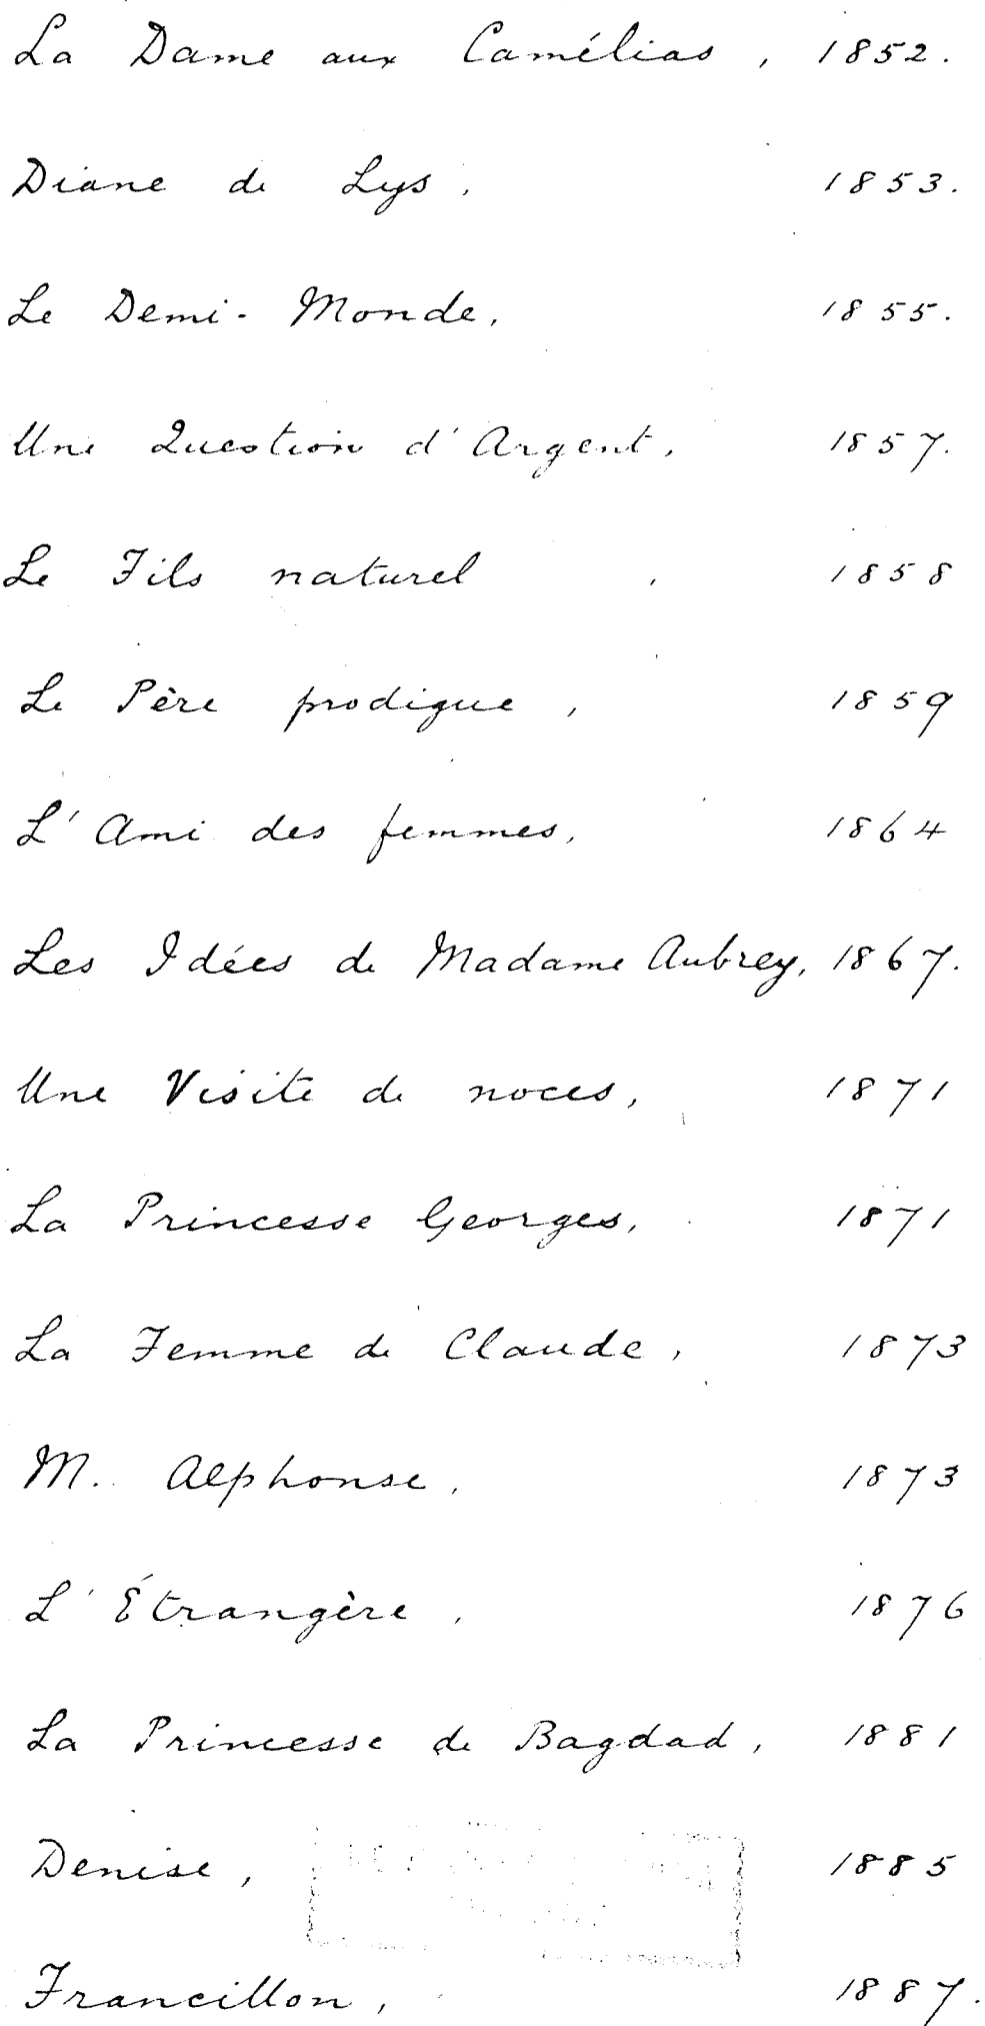 La Dame aux Camélias, 1852.
Diane de Lys, 1853.
Le Demi-Monde, 1855.
Une Question d'Argent, 1857.
Le Fils naturel, 1858
Le Père prodigue, 1859
L'Ami des femmes, 1864
Les Idées de Madame Aubrey, 1867.
Une Visite de noces, 1871
La Princesse Georges, 1871
La Femme de Claude, 1873
M. Alphonse, 1873
L'Étrangère, 1876
La Princesse de Bagdad, 1881
Denise, 1885
Francillon, 1887.